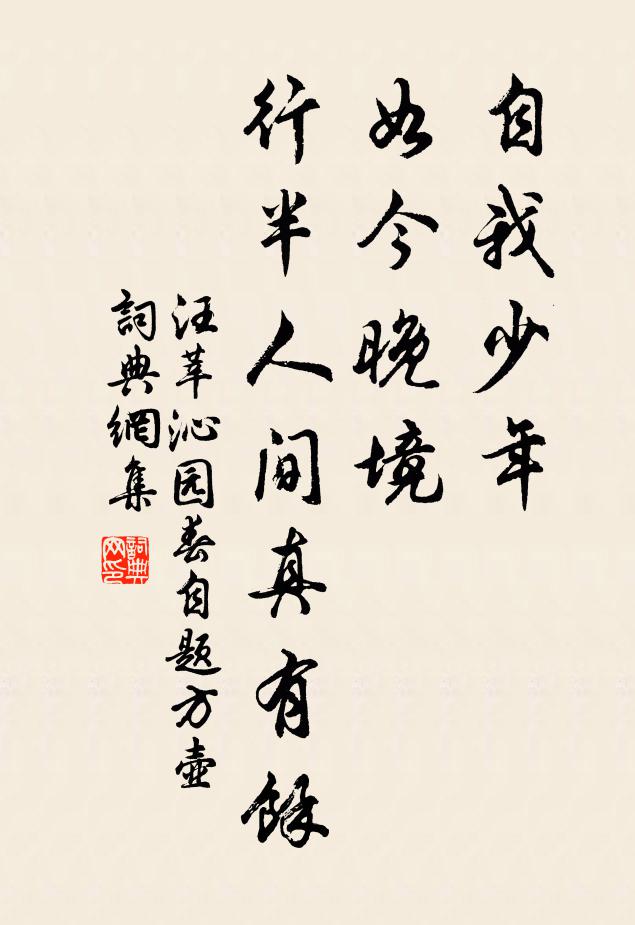 自我少年
如今晚境
行半人间真有馀
汪莘沁园春自题方壶
詞典網集
詞典网印